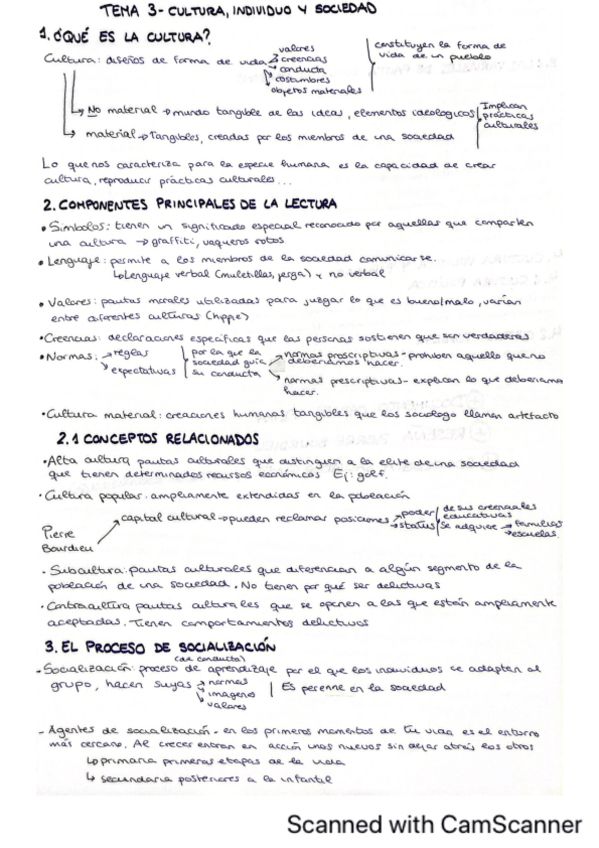 TEMA 3- CULTURA, INDIVIDUO Y SOCIEDAD
1. ¿QUÉ ES LA CULTURA?
Cultura: diseños de forma de vida
valores
creencias
conducta
costumbres
objetos materiales
constituyen la forma de
vida de un pueblo
No material → mundo tangible de las ideas, elementos ideologicos
material → tangibles, creadas por los miembros de una sociedad
Implican
prácticas
culturales
Lo que nos caracteriza para la especie humana es la capacidad de crear
cultura, reproducir prácticas culturales...
2. COMPONENTES PRINCIPALES DE LA LECTURA
• Símbolos: tienen un significado especial reconocido por aquellas que comparten
una cultura → graffiti, vaqueros rotos
• Lenguaje: permite a los miembros de la sociedad comunicarse.
↳ Lenguaje verbal (muletillas, jerga) y no verbal
• Valores: pautas morales utilizadas para juzgar lo que es bueno/malo, varían
entre diferentes culturas (hippie)
• Creencias: declaraciones específicas que las personas sostienen que ser verdaderas
• Normas: → reglas
→ expectativas
por la que la
sociedad guía
su conducta
→ normas proscriptivas - prohiben aquello que no
deberíamos hacer.
→ normas prescriptivas - explican lo que deberíamos
hacer.
• Cultura material: creaciones humanas tangibles que los sociologo llaman artefacto
2.1 CONCEPTOS RELACIONADOS
• Alta cultura pautas culturales que distinguen a la elite de una sociedad
que tienen determinados recursos económicos Ej: golf.
• Cultura popular: ampliamente extendidas en la población
Pierre
Bourdieu
→ capital cultural → pueden reclamar posiciones → poder
→ status
de sus credenciales
educativas
se adquiere → familias
→ escuelas.
- Subcultura: pautas culturales que diferencian a algún segmento de la
población de una sociedad. No tienen por qué ser delictivas
• Contracultura pautas culturales que se oponen a las que están ampliamente
aceptadas. Tienen comportamientos delictivos
3. EL PROCESO DE SOCIALIZACIÓN
(de conducta)
- Socialización: proceso de aprendizaje por el que los individuos se adaptan al
grupo, hacen suyas → normas
→ imagenes
→ valores
Es perenne en la sociedad
- Agentes de socialización - en los primeros momentos de tu vida es el entorno
más cercano. Al crecer entran en acción unos nuevos sin dejar atrás los otros
↳ primaria primeras etapas de la vida
↳ secundaria posteriores a la infantil
Scanned with CamScanner